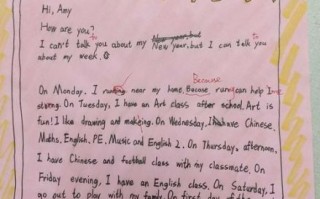 Hi, Amy
How are you?
I can't talk to you about my New year, but I can talk to you
about my week.
Because
On Monday, I running near my home. Becose, run can help
strong. On Tuesday, I have an Art class after school. Art is
fun! I like drawing and making. On Wednesday, I have Chinese,
Maths, English, PE, Music and English 2. On Thursday, afternoon,
I have Chinese and football class with my classmate. On
Friday evening, I have an English class. On Saturday, I
go out to play with my family. On first day of the